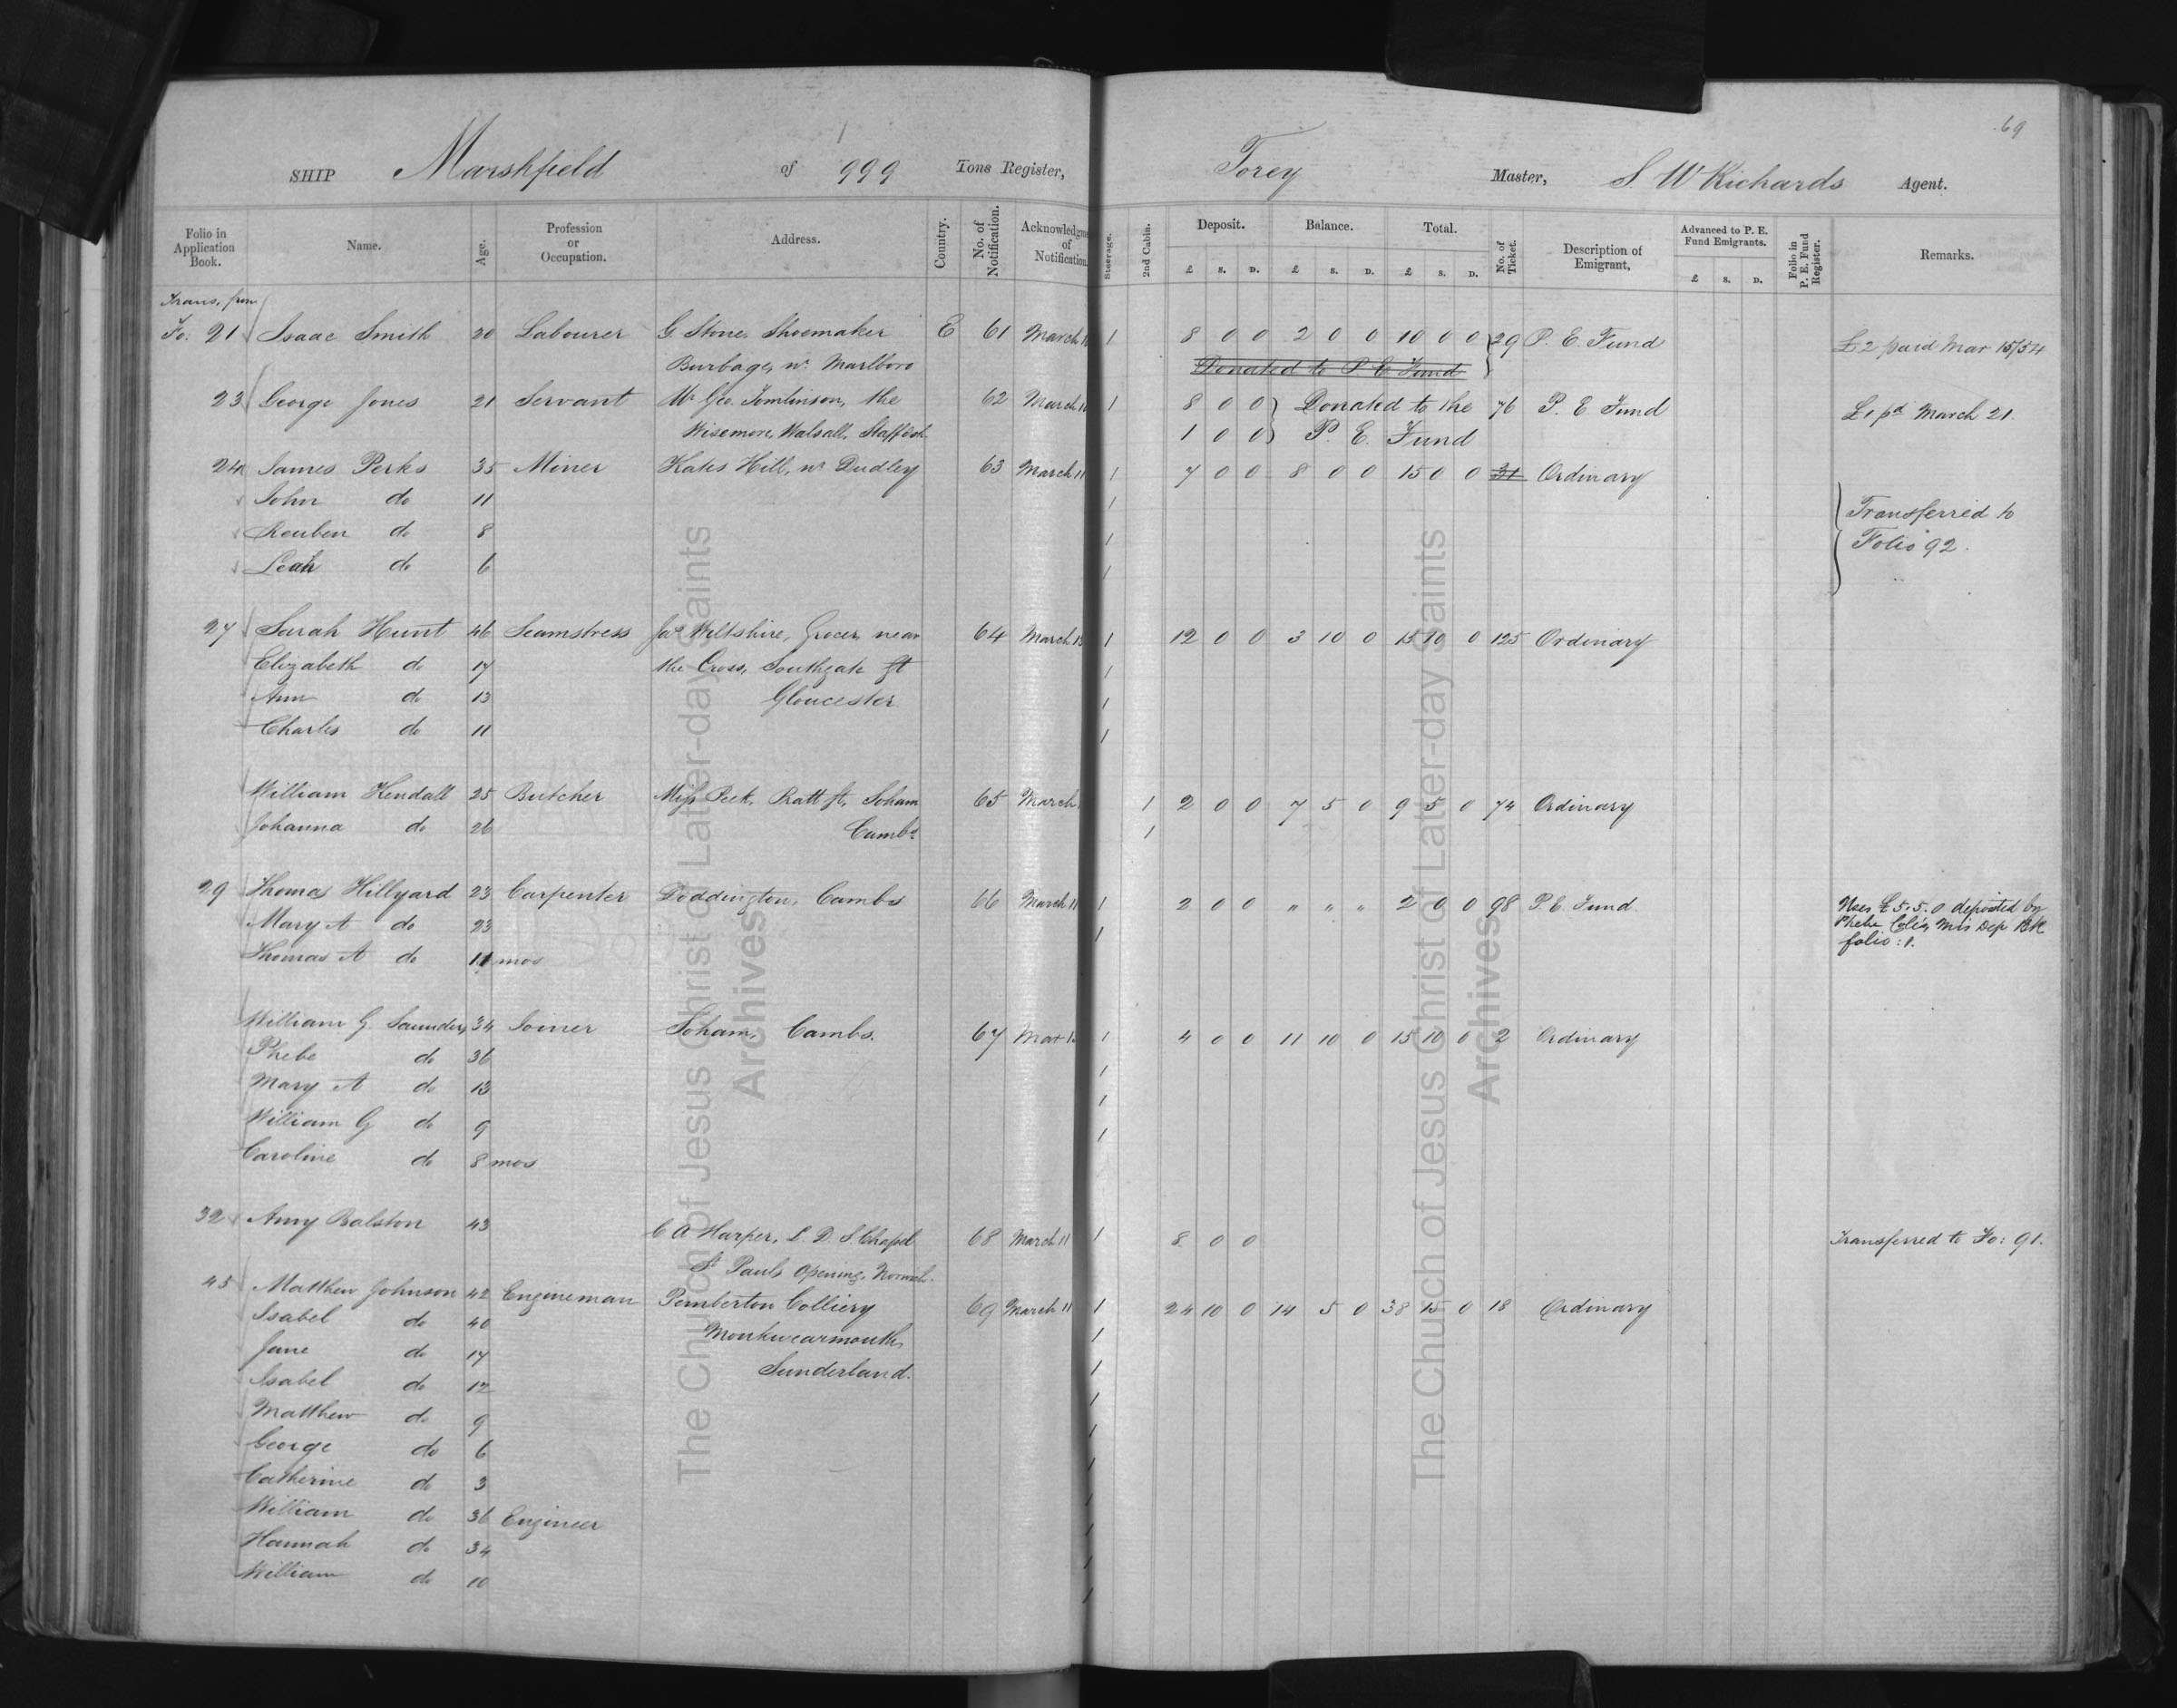 69
SHIP Marshfield of 999 Tons Register, Torey Master, S. W Richards Agent.
Folio in Application Book. Name. Age. Profession or Occupation. Address. Country. No. of Notification. Acknowledgme of Notification. Steerage. 2nd Cabin. Deposit. Balance. Total. No. of Ticket. Description of Emigrant, Advanced to P. E. Fund Emigrants. Folio in P. E. Fund Register. Remarks.
£ S. D. £ S. D. £ S. D. £ S. D.
Trans. from
Fo. 21 Isaac Smith 20 Labourer G. Stone, Shoemaker E 61 March 1 8 0 0 2 0 0 10 0 0 29 P. E. Fund £2 paid Mar 15/54
Burbage, nr Marlboro Donated to P E Fund
23 George Jones 21 Servant Mr Geo. Tomlinson, the 62 March 1 8 0 0 Donated to the 76 P. E Fund £1 pd March 21.
Wisemore, Walsall, Staffdsh. 1 0 0 P. E. Fund
24 James Perks 35 Miner Kates Hill, nr Dudley 63 March 11 1 7 0 0 8 0 0 15 0 0 31 Ordinary
John do 11 1 Transferred to
Reuben do 8 1 Folio 92.
Leah do 6 1
27 Sarah Hunt 46 Seamstress Jas Wiltshire, Grocer, near 64 March 1 12 0 0 3 10 0 15 10 0 125 Ordinary
Elizabeth do 17 the Cross, Southgate St 1
Ann do 13 Gloucester 1
Charles do 11 1
William Kendall 25 Butcher Miss Peek, Pratt St, Soham 65 March 1 2 0 0 7 5 0 9 5 0 74 Ordinary
Johanna do 26 Cambs 1
29 Thomas Hillyard 23 Carpenter Doddington, Cambs 66 March 11 1 2 0 0 " " " 2 0 0 98 P. E. Fund Uses £5.5.0 deposited by
Mary A do 23 1 Phebe Mis Dep Bk
Thomas A do 11 mos folio: 1.
William G Saunders 34 Joiner Soham, Cambs. 67 Mar 1 4 0 0 11 10 0 15 10 0 2 Ordinary
Phebe do 36 1
Mary A do 13 1
William G do 9 1
Caroline do 8 mos
32 Amy Balston 43 C A Harper, L. D. S. Chapel 68 March 11 1 8 0 0 Transferred to Fo: 91.
St Pauls Opening, Norwich.
45 Matthew Johnson 42 Engineman Pemberton Colliery 69 March 11 1 24 10 0 14 5 0 38 15 0 18 Ordinary
Isabel do 40 Monkwearmouth, 1
Jane do 17 Sunderland. 1
Isabel do 12 1
Matthew do 9 1
George do 6 1
Catherine do 3 1
William do 36 Engineer 1
Hannah do 34 1
William do 10 1
The Church of Jesus Christ of Latter-day Saints
Archives
The Church of Jesus Christ of Latter-day Saints
Archives